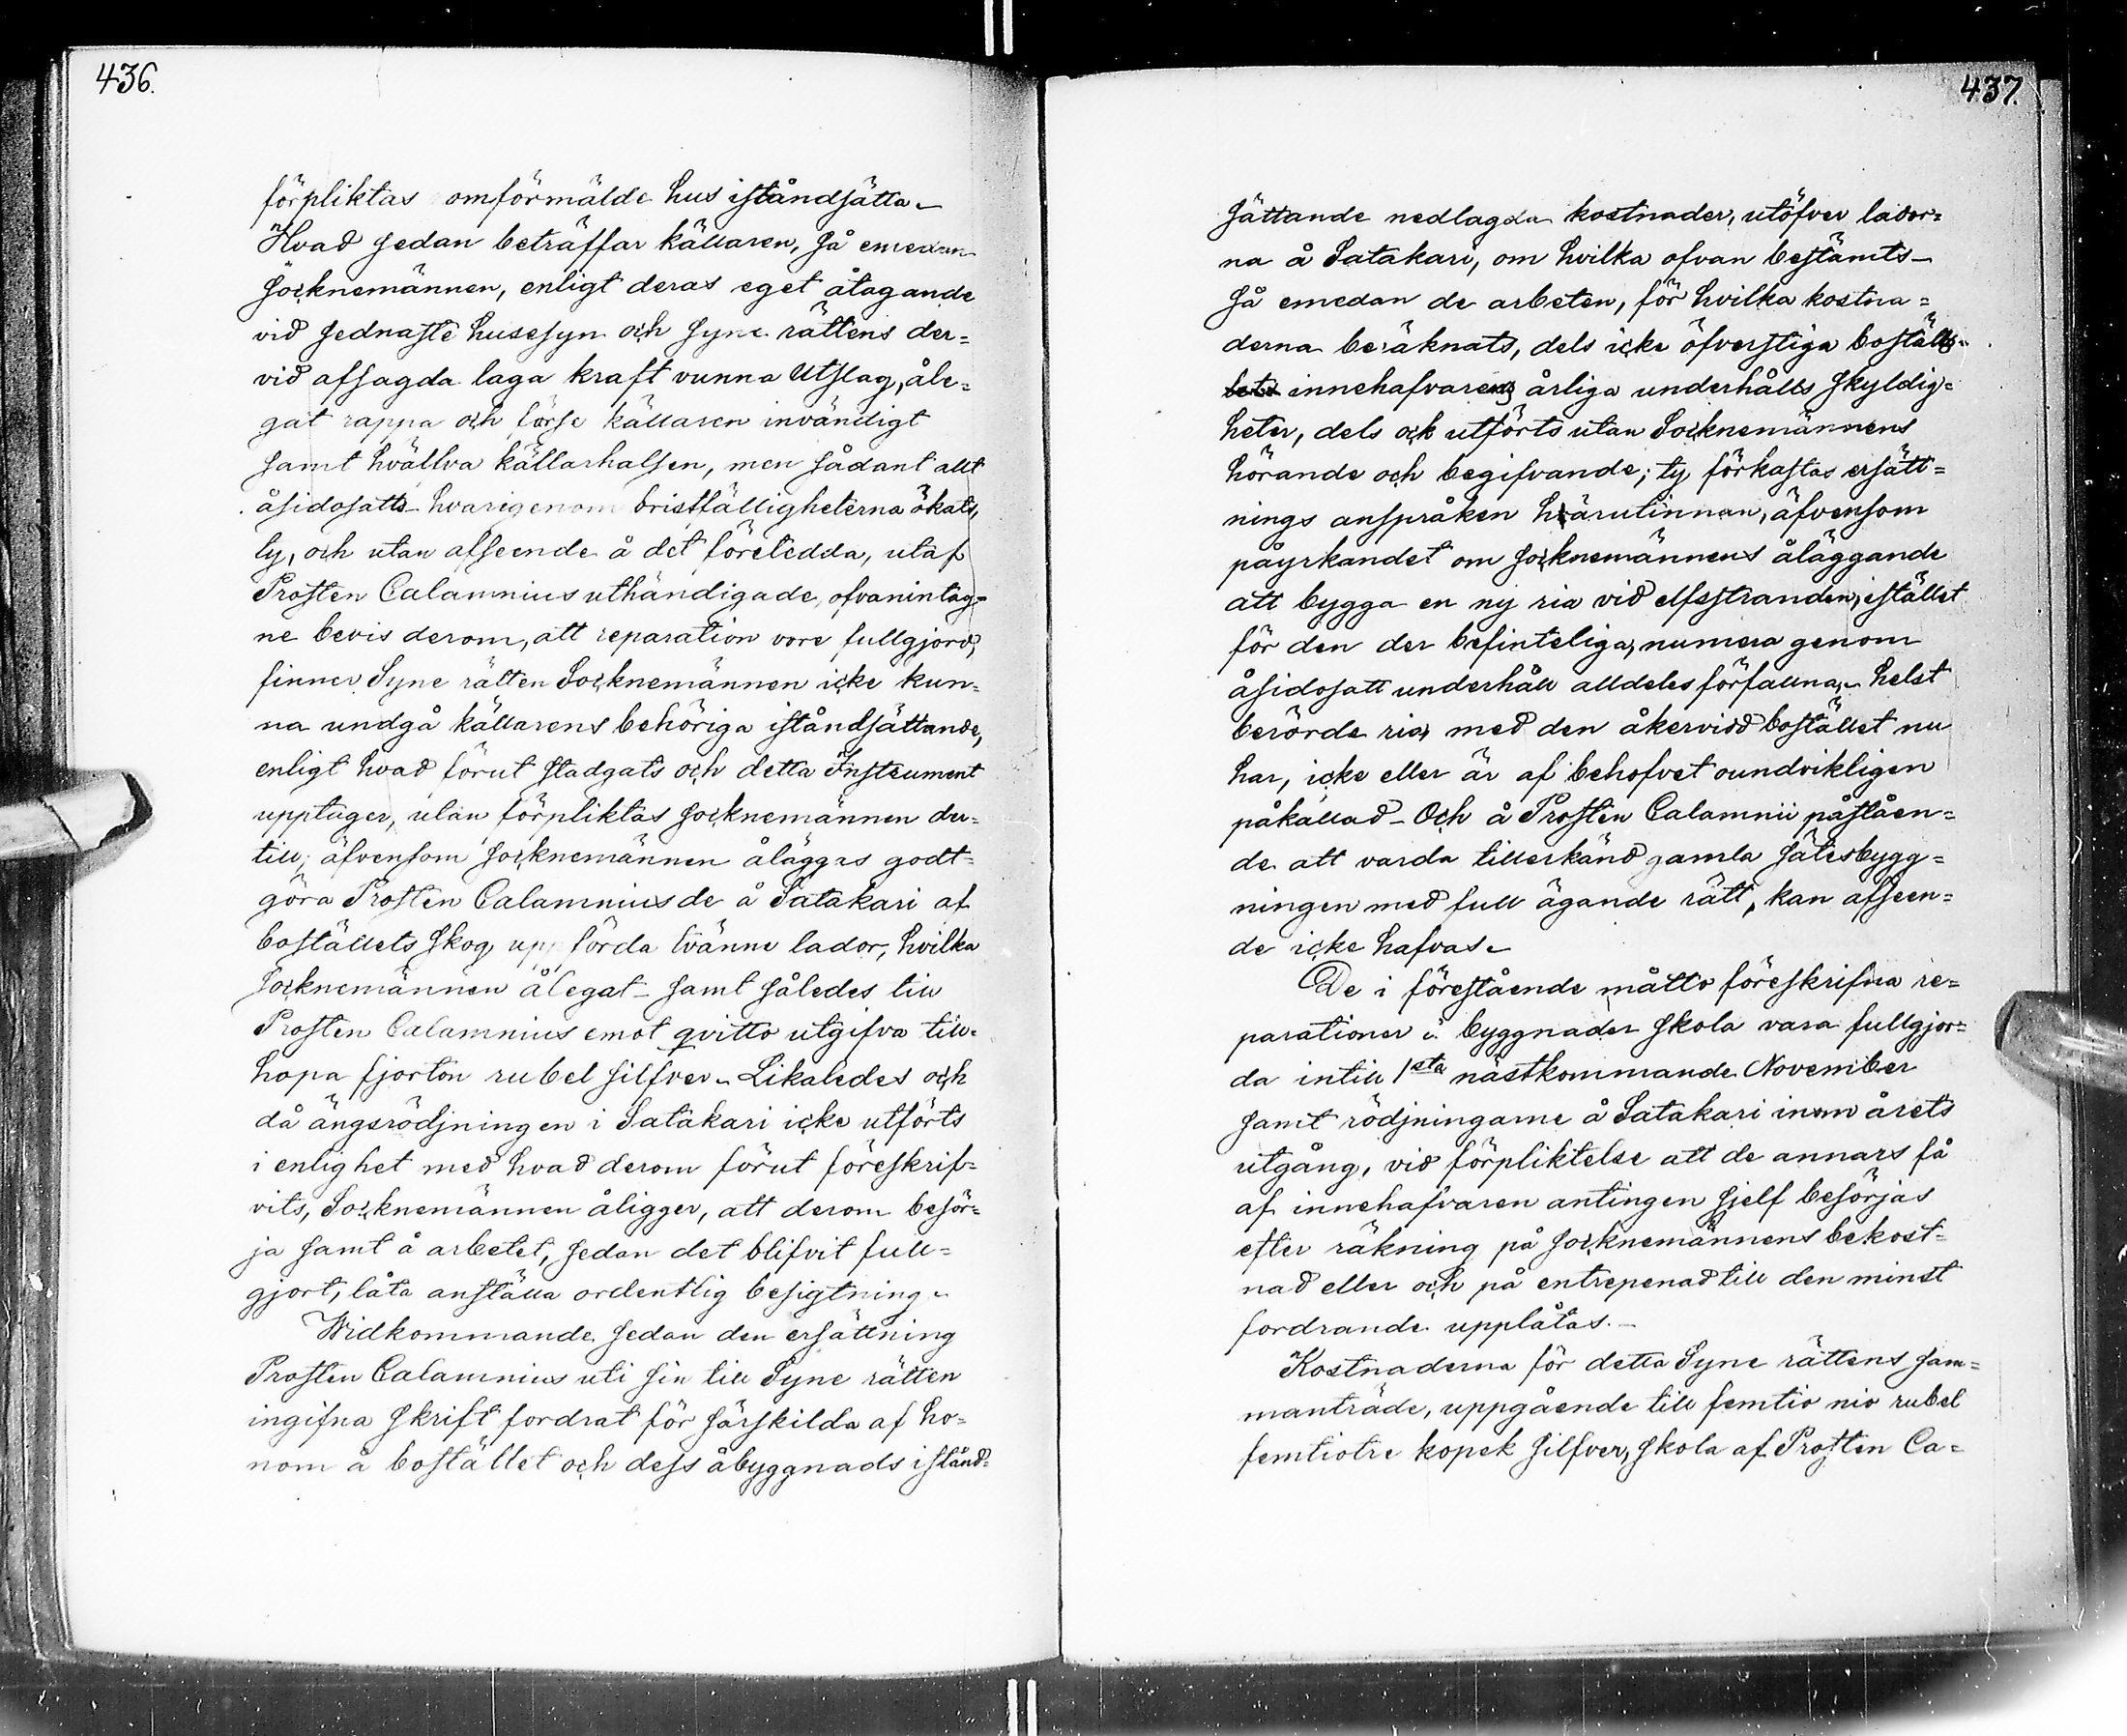 436.
förpliktas omförmälde hus iståndsätta.
Hvad sedan beträffar källaren, så emedan
Socknemännen, enligt deras eget åtagande
vid sednaste husesyn och Syne rättens der=
vid afsagda laga kraft vunna Utslag, åle=
gat rappa och förse källaren invändigt
samt hvälfva källarhalsen, men sådant allt
åsidosatts – hvarigenom bristfälligheterna ökats,
ty, och utan afseende å det företedda, utaf
Prosten Calamnius uthändigade, ofvanintag=
ne bevis derom, att reparation vore fullgjord,
finner Syne rätten Socknemännen icke kun=
na undgå källarens behöriga iståndsättande,
enligt hvad förut stadgats och detta Instrument
upptager, utan förpliktas socknemännen der=
till; äfvensom socknemännen åläggas godt=
göra Prosten Calamnius de å Satakari af
boställets skog uppförda tvänne lador, hvilka
socknemännen ålegat – samt således till
Prosten Calamnius emot qvitto utgifva till=
hopa fjorton rubel silfver. Likaledes och
då ängsrödjningen i Satakari icke utförts
i enlighet med hvad derom förut föreskrif=
vits, Socknemännen åligger, att derom besör=
ja samt å arbetet, sedan det blifvit full=
gjort, låta anställa ordentlig besigtning.
Widkommande sedan den ersättning
Prosten Calamnius uti sin till Syne rätten
ingifna skrift fordrat för särskilda af ho=
nom å bostället och dess åbyggnads istånd=
437.
sättande nedlagda kostnader, utöfver lador=
na å Satakari, om hvilka ofvan bestämts –
så emedan de arbeten, för hvilka kostna=
derna beräknats, dels icke öfverstiga boställs=
innehafvarens årliga underhålls skyldig=
heter, dels och utförts utan Socknemännens
hörande och begifvande; ty förkastas ersätt=
nings anspråken härutinnan, äfvensom
påyrkandet om socknemännens åläggande
att bygga en ny ria vid elfsstranden, istället
för den der befinteliga, numera genom
åsidosatt underhåll alldeles förfallna, – helst
berörde ria, med den åkervidd bostället nu
har, icke eller är af behofvet oundvikligen
påkallad – Och å Prosten Calamnii påståen=
de att varda tillerkänd gamla sätesbygg=
ningen med full ägande rätt, kan afseen=
de icke hafvas.
De i förestående måtto föreskrifna re=
parationer i byggnader skola vara fullgjor=
da intill 1sta nästkommande November
samt rödjningarne å Satakari inom årets
utgång, vid förpliktelse att de annars få
af innehafvaren antingen sjelf besörjas
efter räkning på socknemännens bekost=
nad eller och på entrepenad till den minst
fordrande upplåtas. –
Kostnaderna för detta Syne rättens sam=
manträde, uppgående till femtio nio rubel
femtiotre kopek silfver, skola af Prosten Ca=